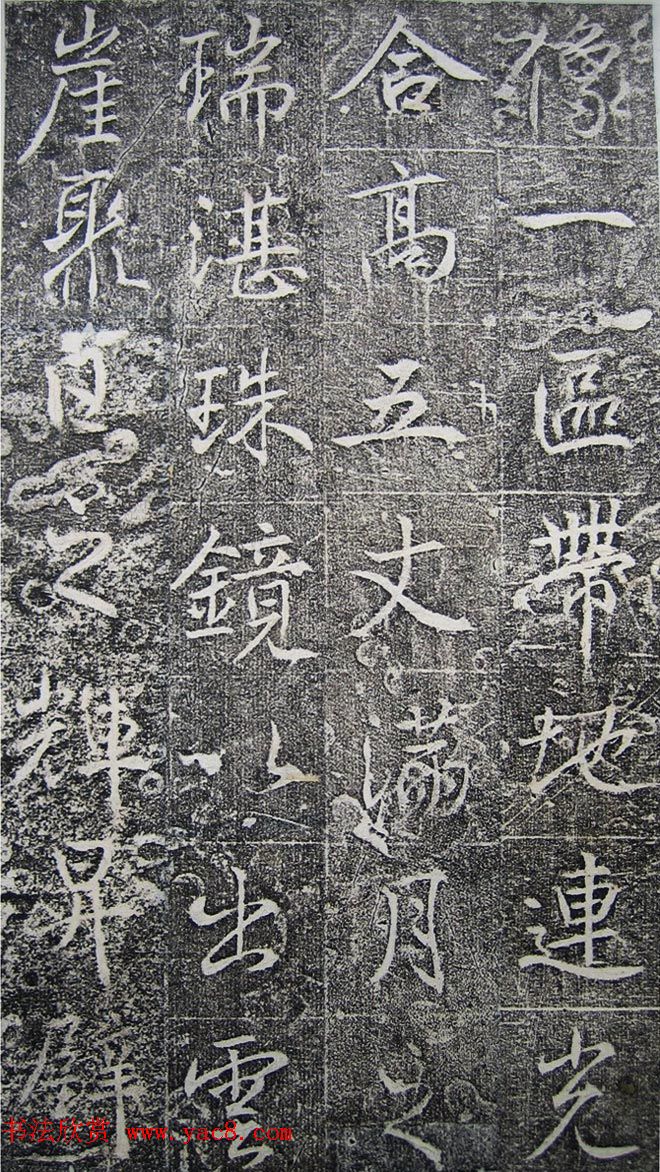 像一區帶地連光
合高五丈滿月之
瑞湛珠鏡以出雲
崖聚之輝昇
书法欣赏 www.yac8.com